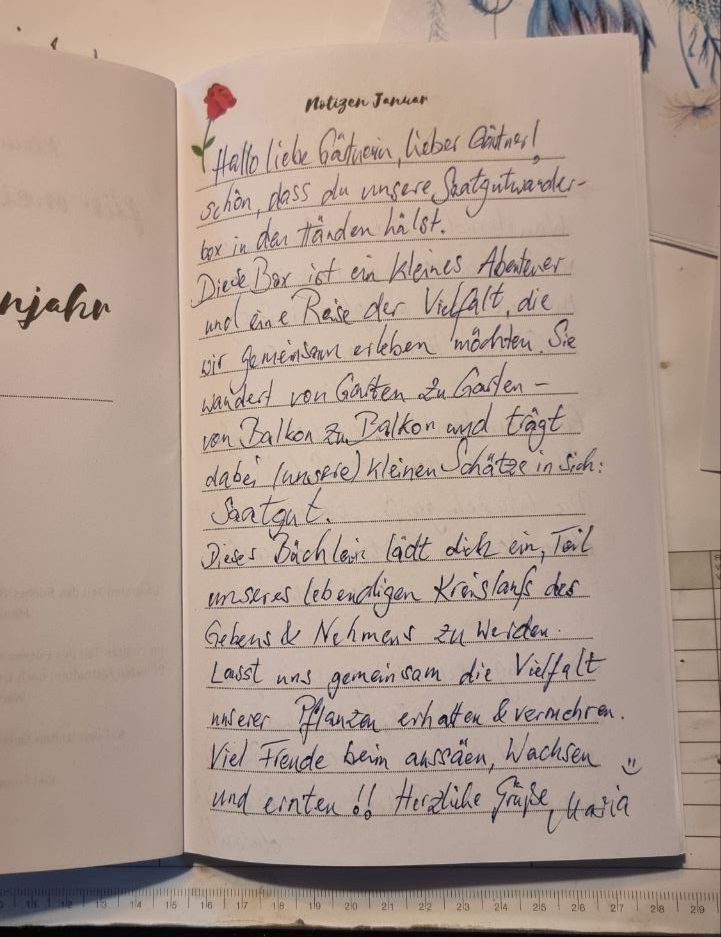 Notizen Januar
Hallo liebe Gärtnerin, lieber Gärtner!
schön, dass du unsere Saatgutwander-
box in den Händen hälst.
Diese Box ist ein kleines Abenteuer
und eine Reise der Vielfalt, die
wir gemeinsam erleben möchten. Sie
wandert von Garten zu Garten –
von Balkon zu Balkon und trägt
dabei (unsere) kleinen Schätze in sich:
Saatgut.
Dieses Büchlein lädt dich ein, Teil
unseres lebendigen Kreislaufs des
Gebens & Nehmens zu werden.
Lasst uns gemeinsam die Vielfalt
unserer Pflanzen erhalten & vermehren.
Viel Freude beim aussäen, Wachsen
und ernten!! Herzliche Grüße, Maria
njahr
10 11 12 13 14 15 16 17 18 19 20 21 22 23 24 25 26 27 28 29